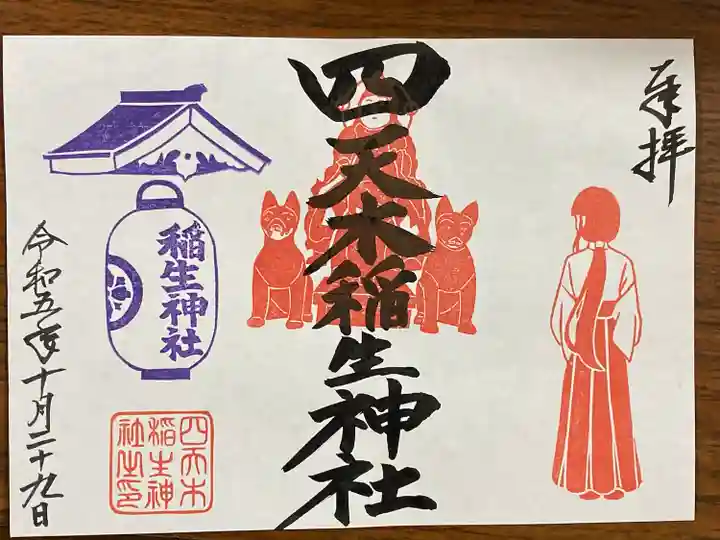 奉拝
四天木稲生神社
稲生神社
四天木
稲生神
社之印
令和五年十月二十九日